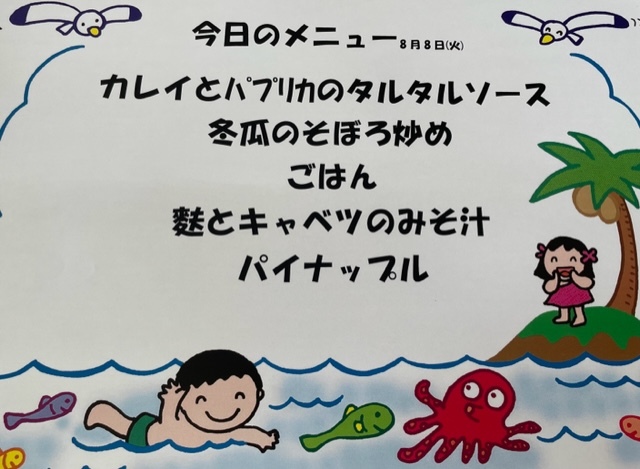 今日のメニュー8月8日(火)
カレイとパプリカのタルタルソース
冬瓜のそぼろ炒め
ごはん
麩とキャベツのみそ汁
パイナップル